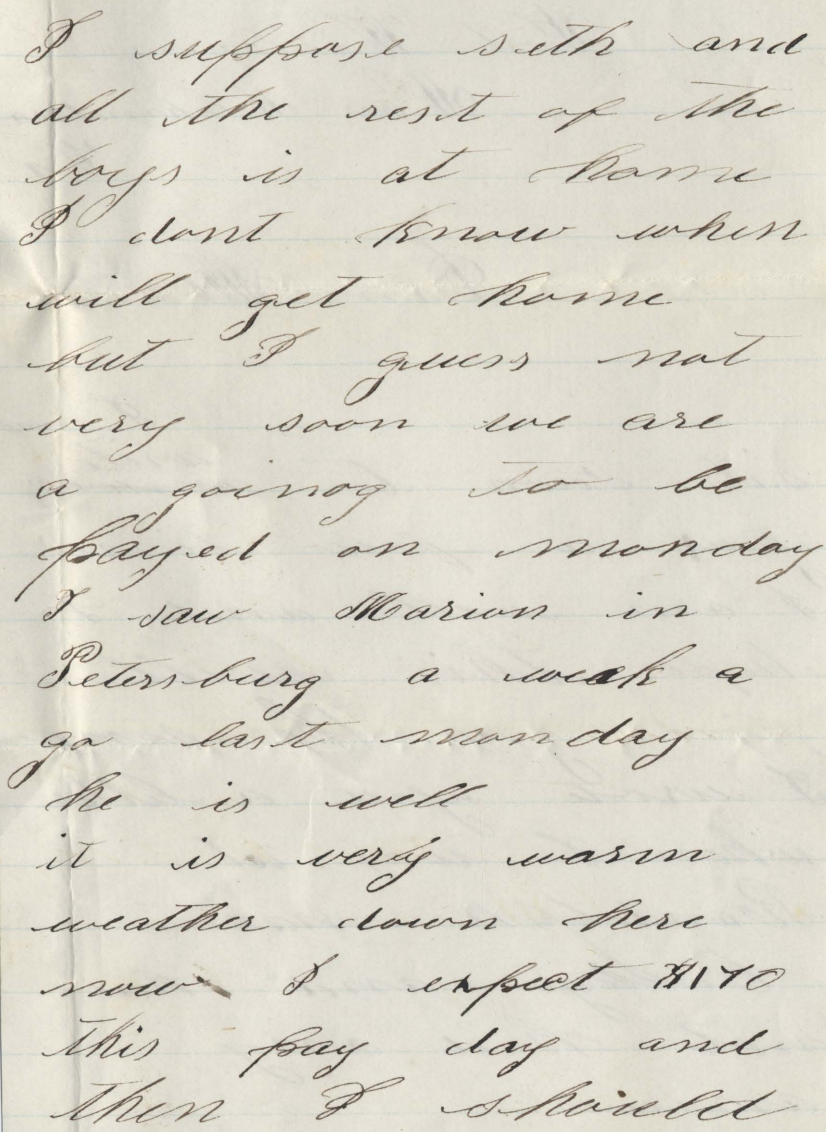 I suppose seth and
all the rest of the
boys is at home
I dont know when
will get home
but I guess not
very soon we are
a goinog to be
payed on monday
I saw Marion in
Petersburg a weak a
go last monday
he is well
it is very warm
weather down here
now I expect $170
this pay day and
then I should